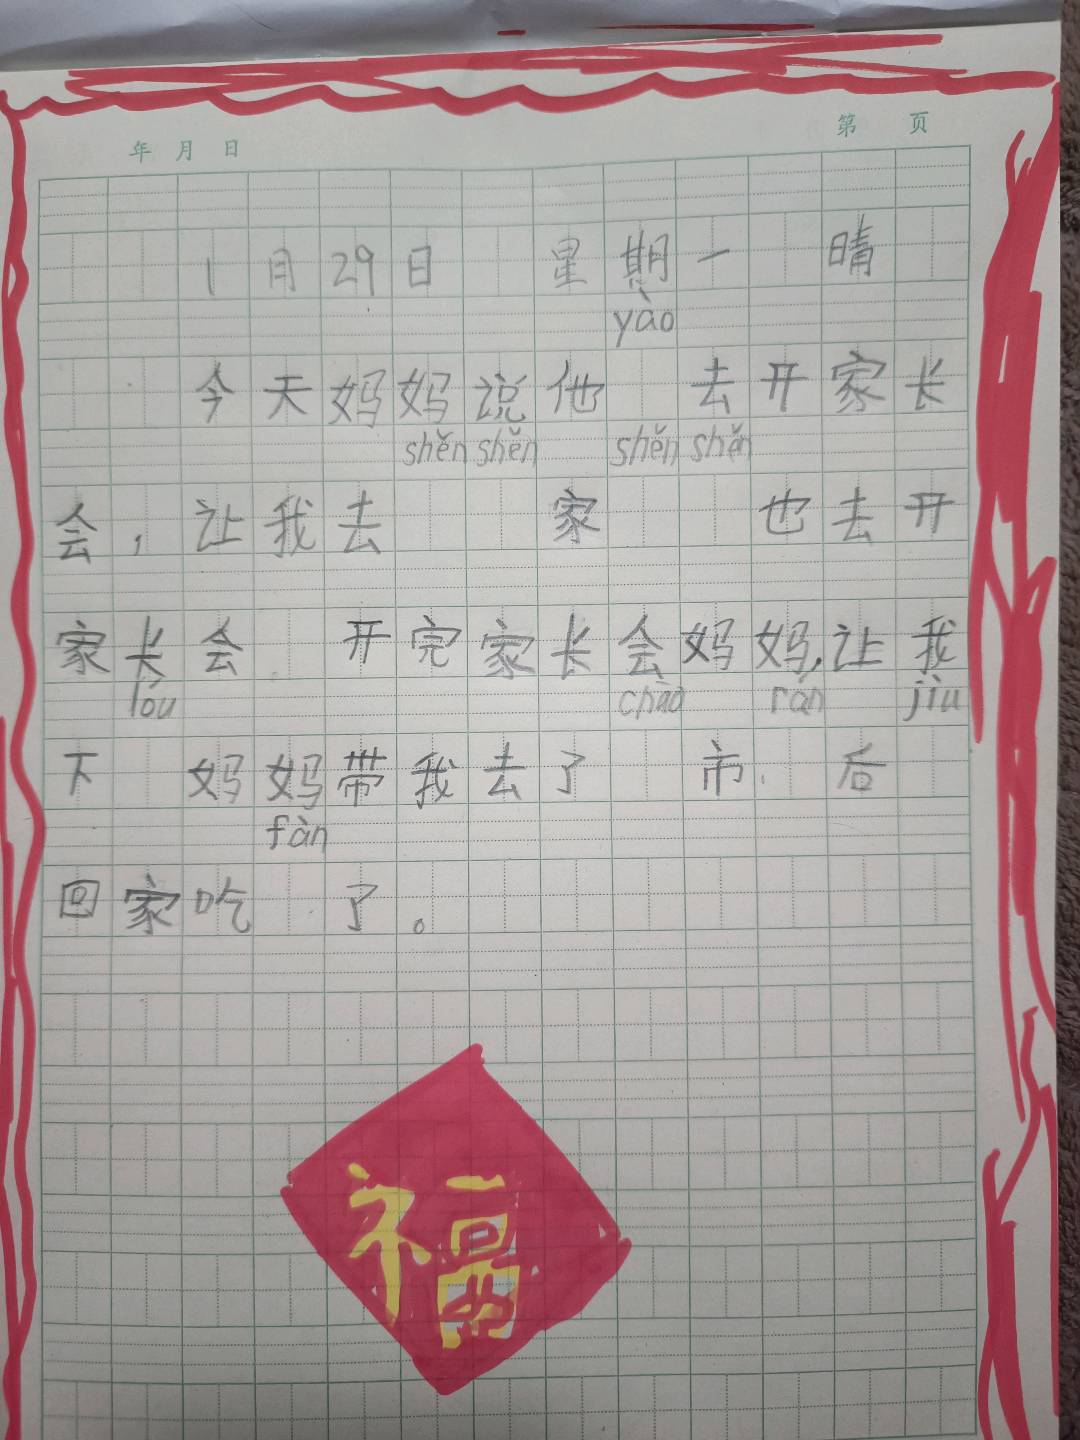 第 页
年 月 日
1月29日 星期一 晴
yào
今天妈妈说他 去开家长
shěn shěn shěn shěn
会，让我去 家 也去开
家长会 开完家长会妈妈，让我
lóu chāo rán jiù
下 妈妈带我去了 市 后
fàn
回家吃 了。
福